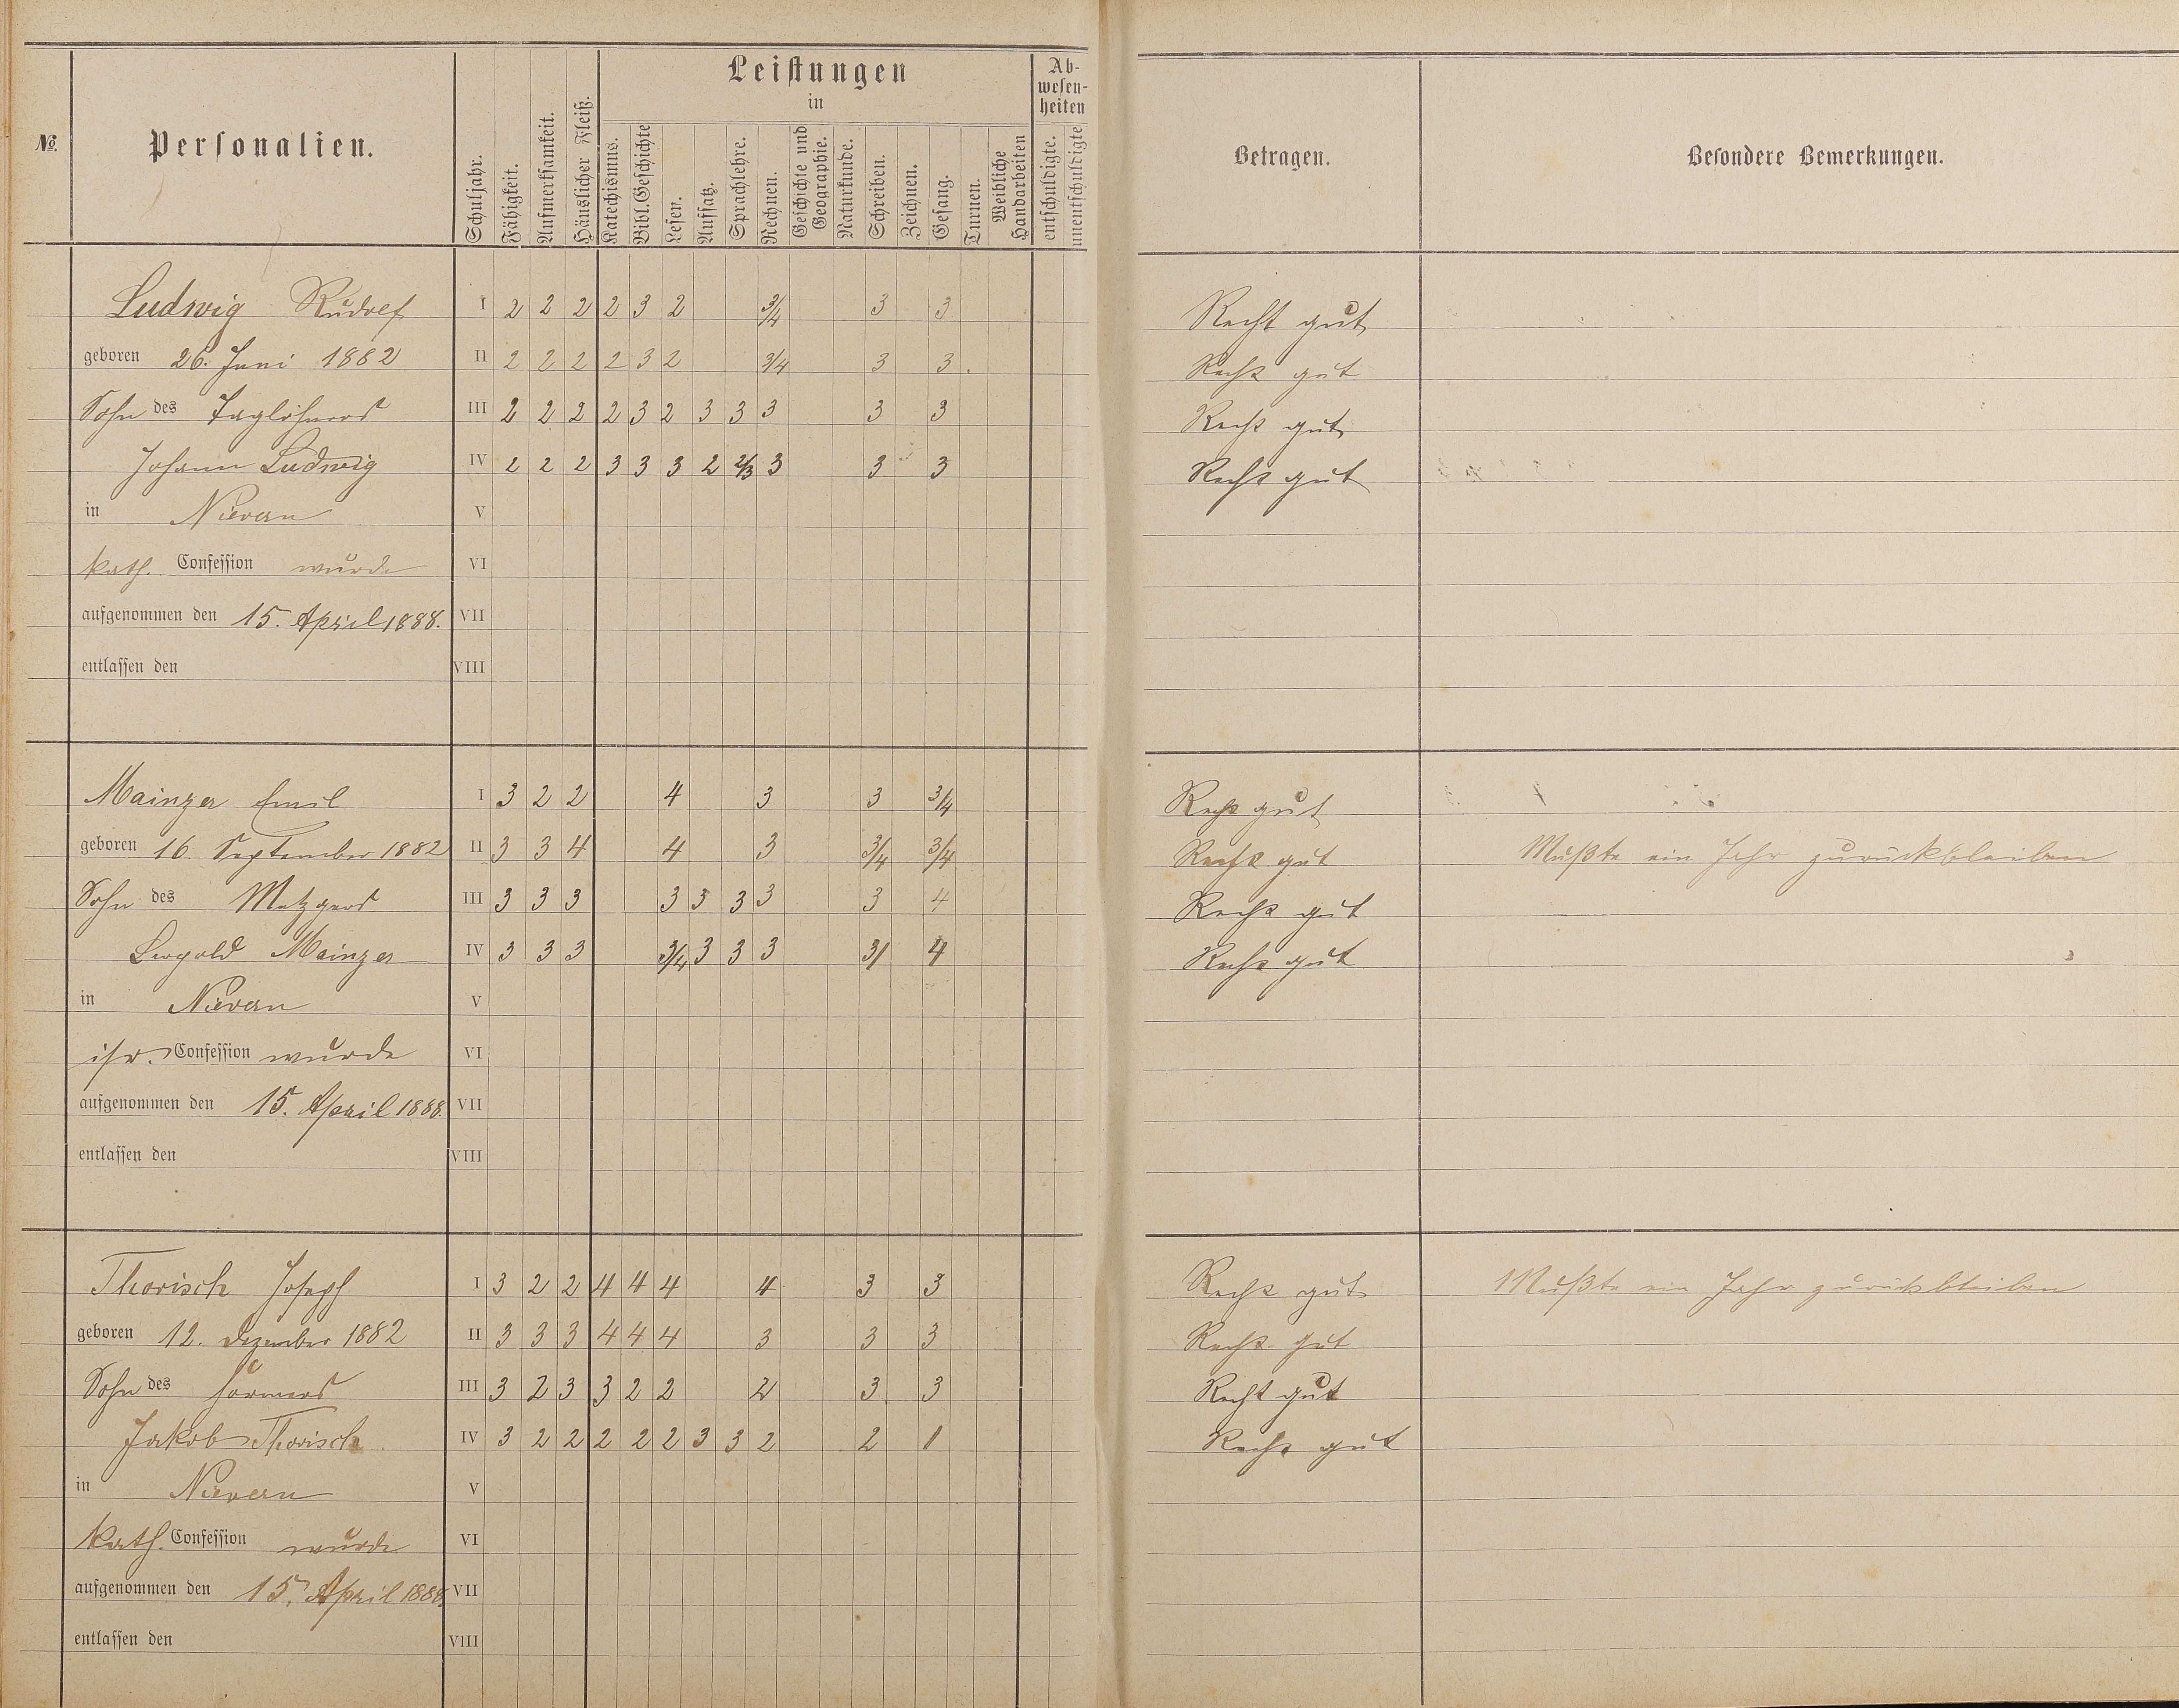 №.
Personalien.
Schuljahr.
Fähigkeit.
Aufmerksamkeit.
Häuslicher Fleiß.
Leistungen
in
Katechismus.
Bibl. Geschichte
Lesen.
Aufsatz.
Sprachlehre.
Rechnen.
Geschichte und
Geographie.
Naturkunde.
Schreiben.
Zeichnen.
Gesang.
Turnen.
Weibliche
Handarbeiten
Ab-
wesen-
heiten
entschuldigte.
unentschuldigte
Betragen.
Besondere Bemerkungen.
Ludwig Rudolf I 2 2 2 2 3 2 3/4 3 3 Recht gut
geboren 26. Juni 1882 II 2 2 2 2 3 2 3/4 3 3. Recht gut
Sohn des Taglöhners III 2 2 2 2 3 2 3 3 3 3 3 Recht gut
Johann Ludwig IV 2 2 2 3 3 3 2 2/3 3 3 3 Recht gut
in Nievern V
kath. Confession wurde VI
aufgenommen den 15. April 1888. VII
entlassen den VIII
Mainzer Emil I 3 2 2 4 3 3 3/4 Recht gut
geboren 16. September 1882 II 3 3 4 4 3 3/4 3/4 Recht gut Mußte ein Jahr zurückbleiben
Sohn des Metzgers III 3 3 3 3 3 3 3 3 4 Recht gut
Leopold Mainzer IV 3 3 3 3/4 3 3 3 3/ 4 Recht gut
in Nievern V
isr. Confession wurde VI
aufgenommen den 15. April 1888. VII
entlassen den VIII
Thorisch Joseph I 3 2 2 4 4 4 4 3 3 Recht gut Mußte ein Jahr zurückbleiben
geboren 12. Dezember 1882 II 3 3 3 4 4 4 3 3 3 Recht gut
Sohn des Formers III 3 2 3 3 2 2 2 3 3 Recht gut
Jakob Thorisch IV 3 2 2 2 2 2 3 3 2 2 1 Recht gut
in Nievern V
kath. Confession wurde VI
aufgenommen den 15. April 1888. VII
entlassen den VIII